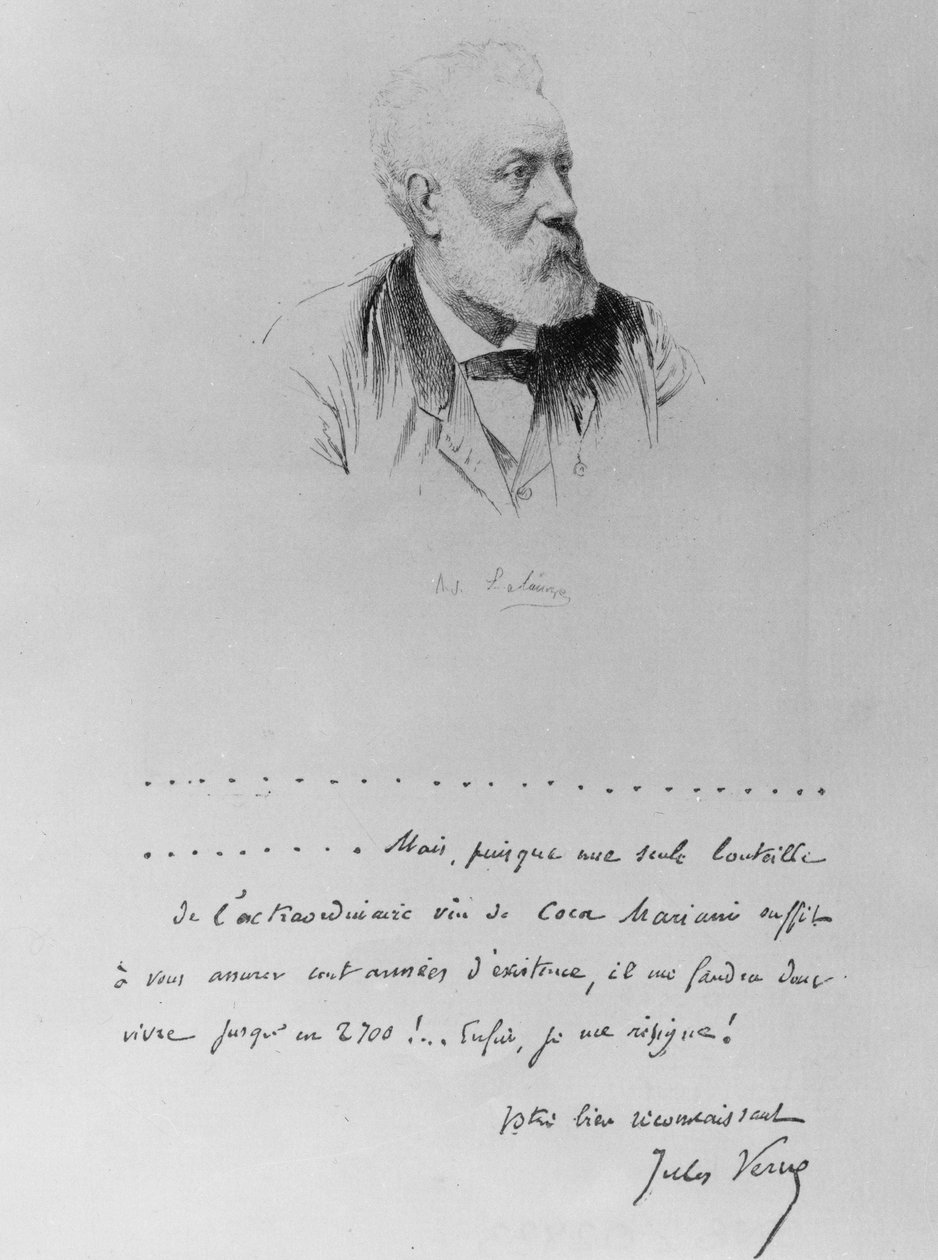 Ad. Lalauze
. . . . . . . . . . . . . . . . . . . . . . . .
. . . . . . . . . Mais, puisque une seule bouteille
de l'extraordinaire vin de Coca Mariani suffit
à vous assurer cent années d'existence, il me faudra donc
vivre jusqu'en 2700 !... Enfin, je me résigne !
Vtre bien reconnaissant
Jules Verne